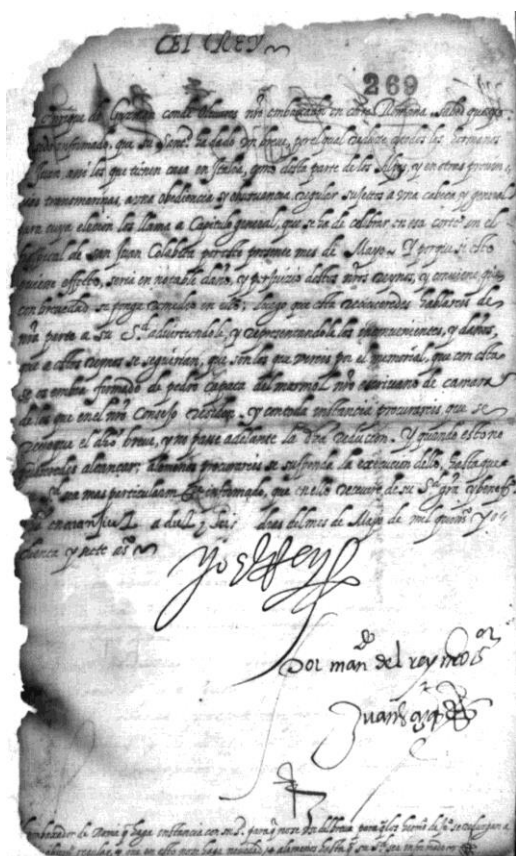 El Rey
269
de Guzman conde Olivares nro embaxador en corte Romana sabed que
informado, que su Sand. ha dado un breve, por el qual los hermanos
de Juan, ansi los que tienen casa en Italia, como desta parte de los Alpes, y en otras provin
transmarinas, a una obediencia y observancia regular subjetos a una cabeça y general
para cuya election les llama a Capitulo general, que se ha de celebrar en essa corte en el
ospital de san Juan Colabita por este presente mes de Mayo. Y porque si esto
tuviesse effetto, seria en notable daño, y perjuicio destos nros Reynos, y conviene que
con brevedad se ponga remedio en ello; luego que esta hablareis de
nra parte a su Sd. advertendole, y representandole los inconvenientes, y daños,
que a estos Reynos se seguirian, que son los que vereis por el memorial, que con esta
se os embia firmado de pedro çapata del marmol nro escrivano de camara
de los que en el nro Consejo residen. y con toda instancia procurareis, que se
revoque el dho breve, y no passe adelante la dha reducion. Y quando esto no
alcançar; alomenos procurareis se suspenda la execucion dello, hasta que
Sd. sea mas particularmte informado, que en ello recevire de su Sd. gra y
de en a diez y seis dias del mes de Mayo de mil quis y o
chenta y siete as.
Yo el Rey
Por mando del rey nro sor
Juan
embaxador de Roma q haga instancia con su Sd. para q del breve para q los hermos de Jo se reduzgan a
regular, y que en esto no haga novedad o alomenos hasta q su Sd. sea informado